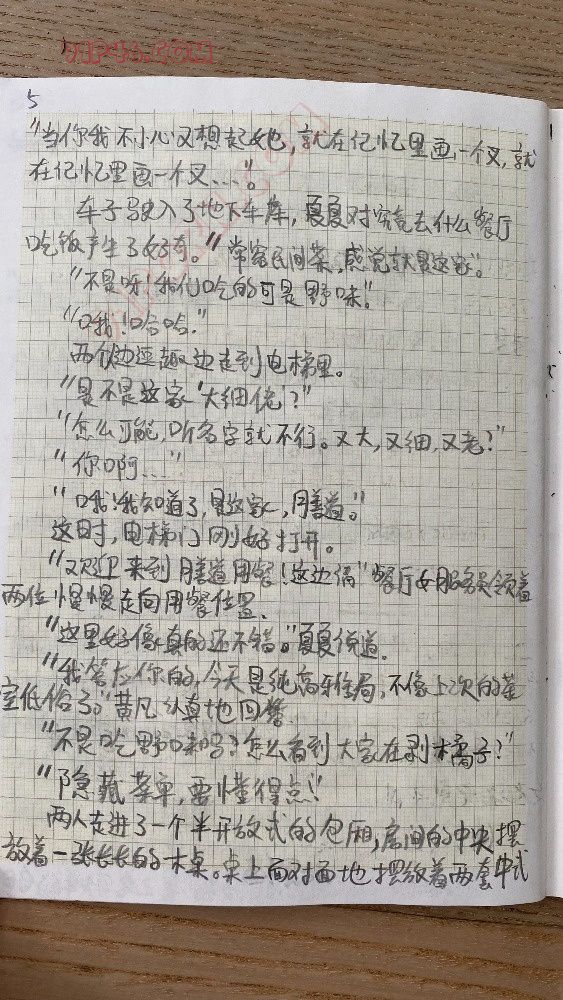 5
"当你我不小心又想起她,就在记忆里画一个叉,就
在记忆里画一个叉……"。
车子驶入了地下车库,夏夏对究竟去什么餐厅
吃饭产生了好奇。"常客民间菜,感觉就是这家"。
"不是呀!我们吃的可是野味。"
"哦!哈哈。"
两个边逗趣边走到电梯里。
"是不是这家'大细佬'?"
"怎么可能,听名字就不行。又大,又细,又老?"
"你啊……"
"哦!我知道了,是这家,膳道。"
这时,电梯门刚好打开。
"欢迎来到膳道用餐!这边请"餐厅女服务员领着
两位慢慢走向用餐位置.
"这里好像真的还不错。"夏夏说道.
"我答应你的,今天是纯高雅局,不像上次的菜
室低俗了。"黄凡认真地回答.
"不是吃野味吗?怎么看到大家在剥橘子?"
"隐藏菜单,要懂得点!"
两人走进了一个半开放式的包厢,房间的中央摆
放着一张长长的木桌。桌上面对面地摆放着两套中式